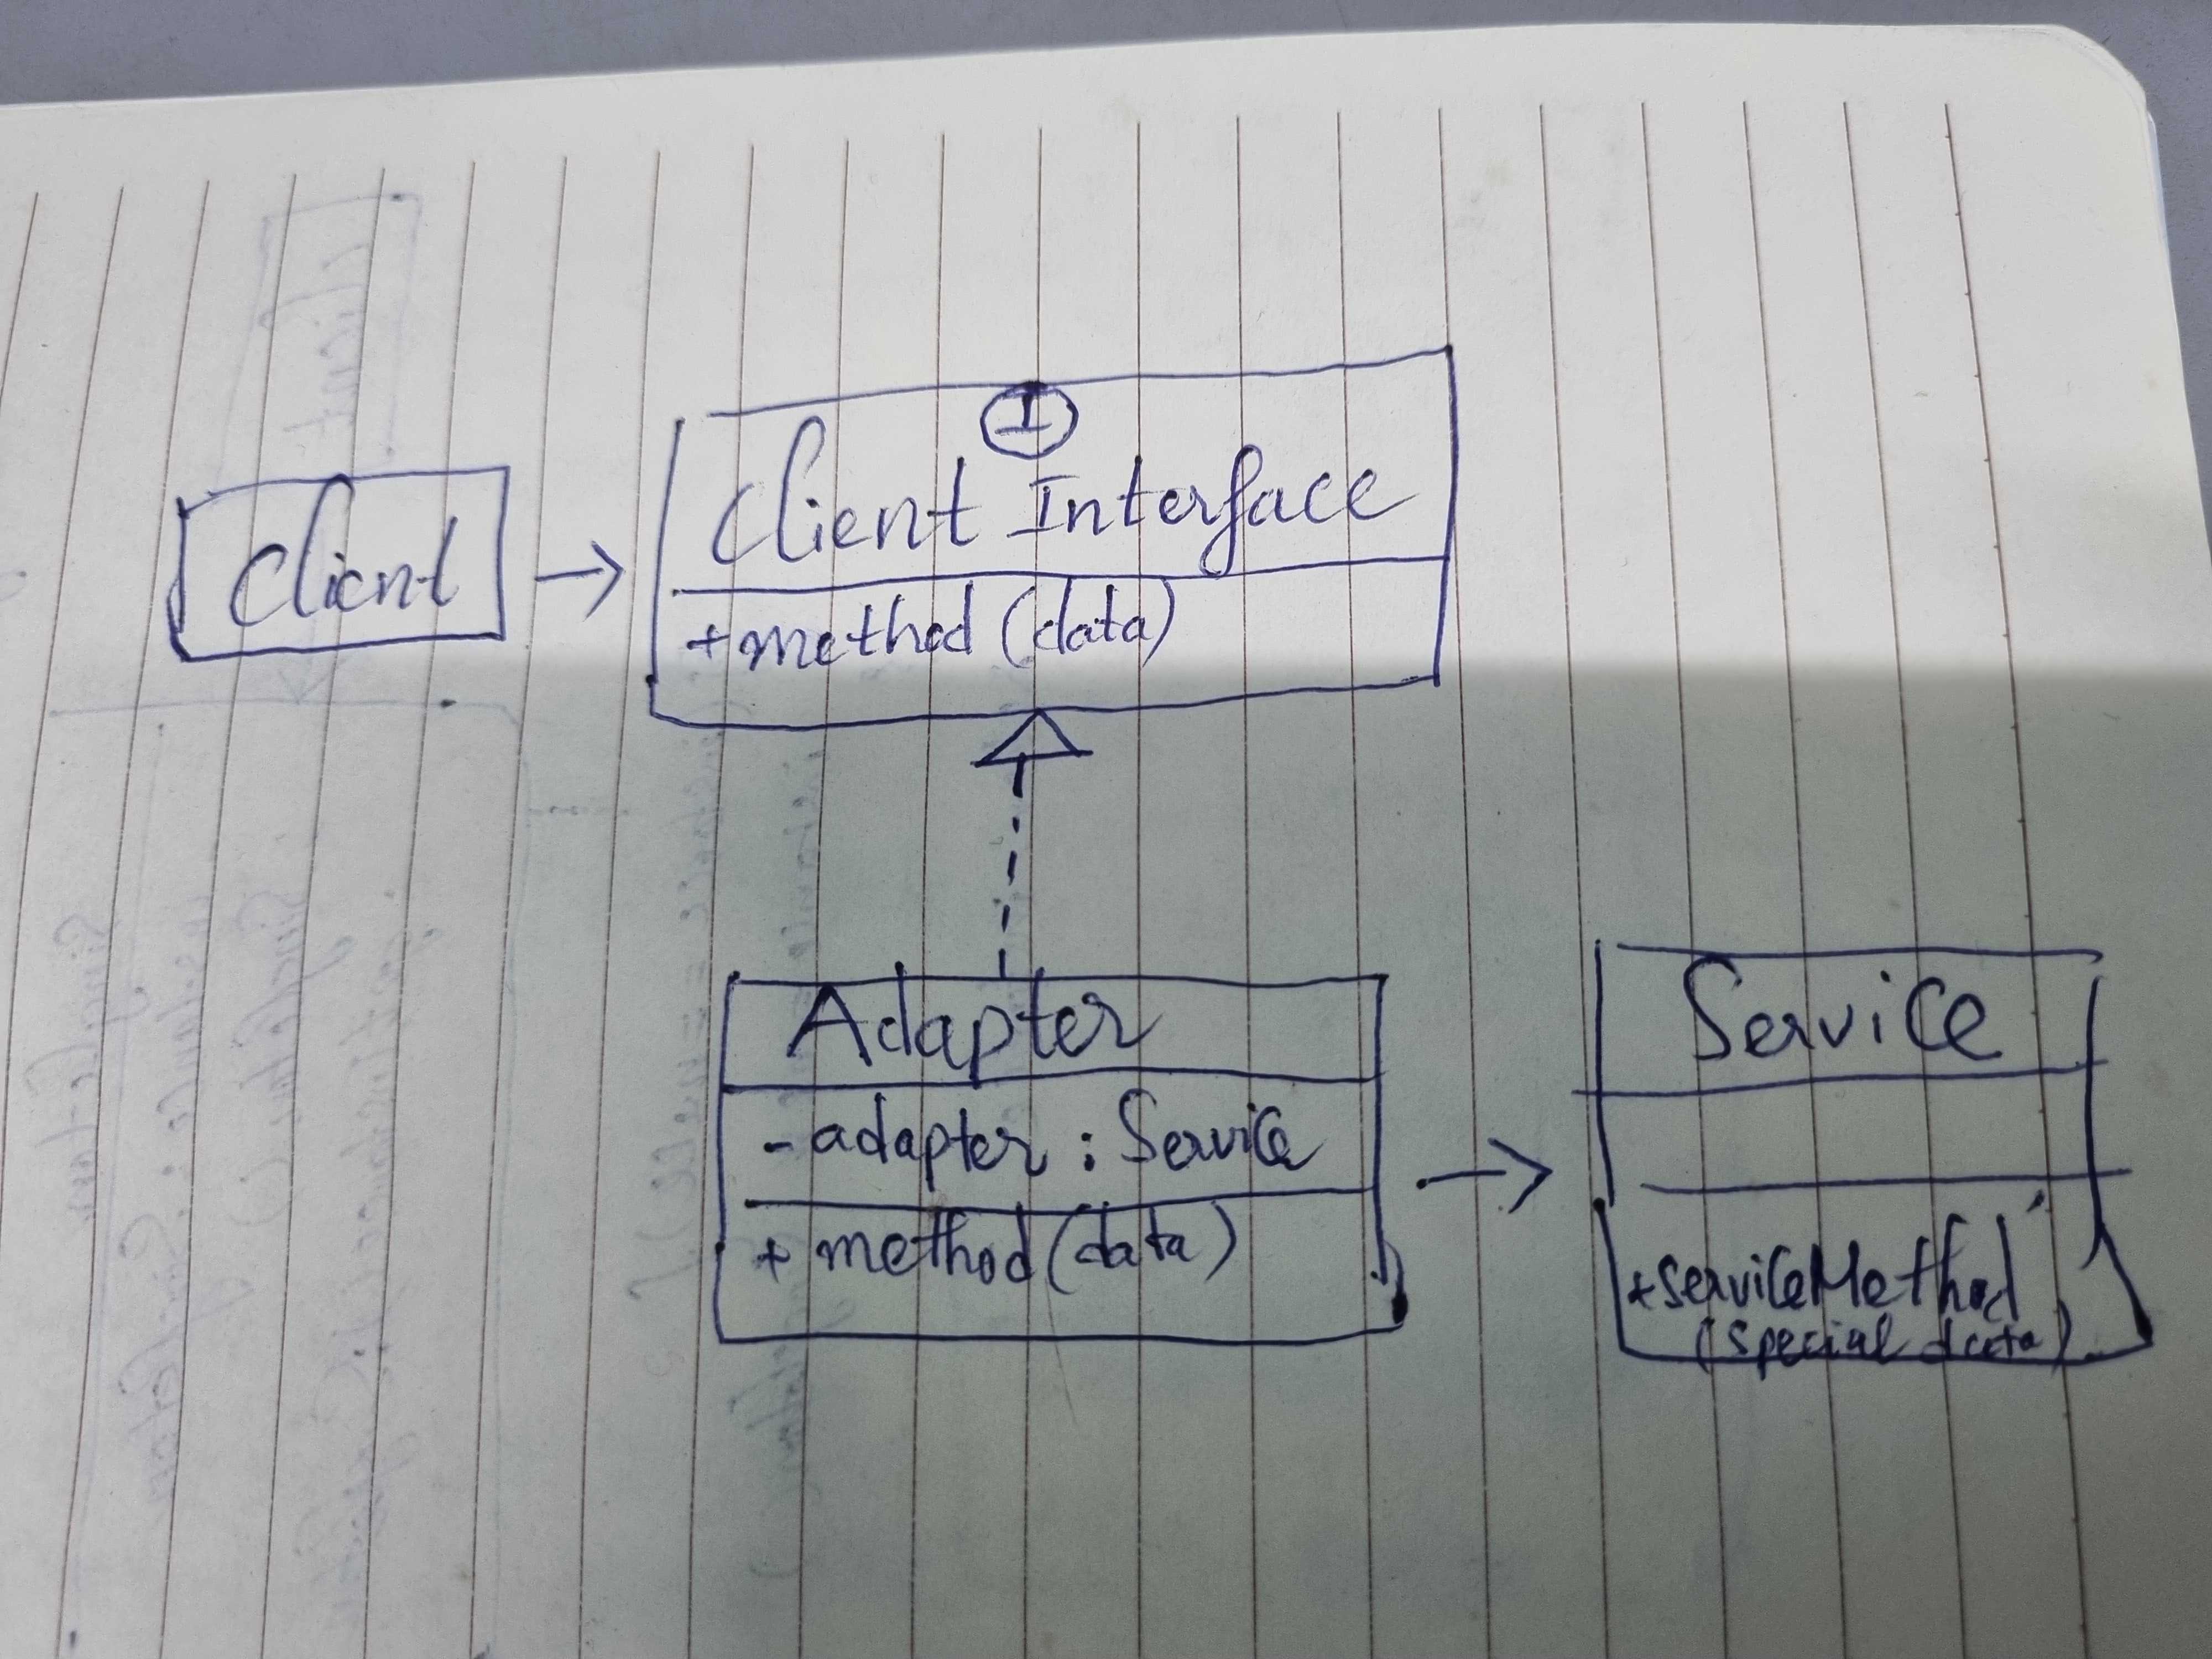 I
Client Interface
+ method (data)
Client
Adapter
- adapter : Service
+ method (data)
Service
+ serviceMethod
(special data)